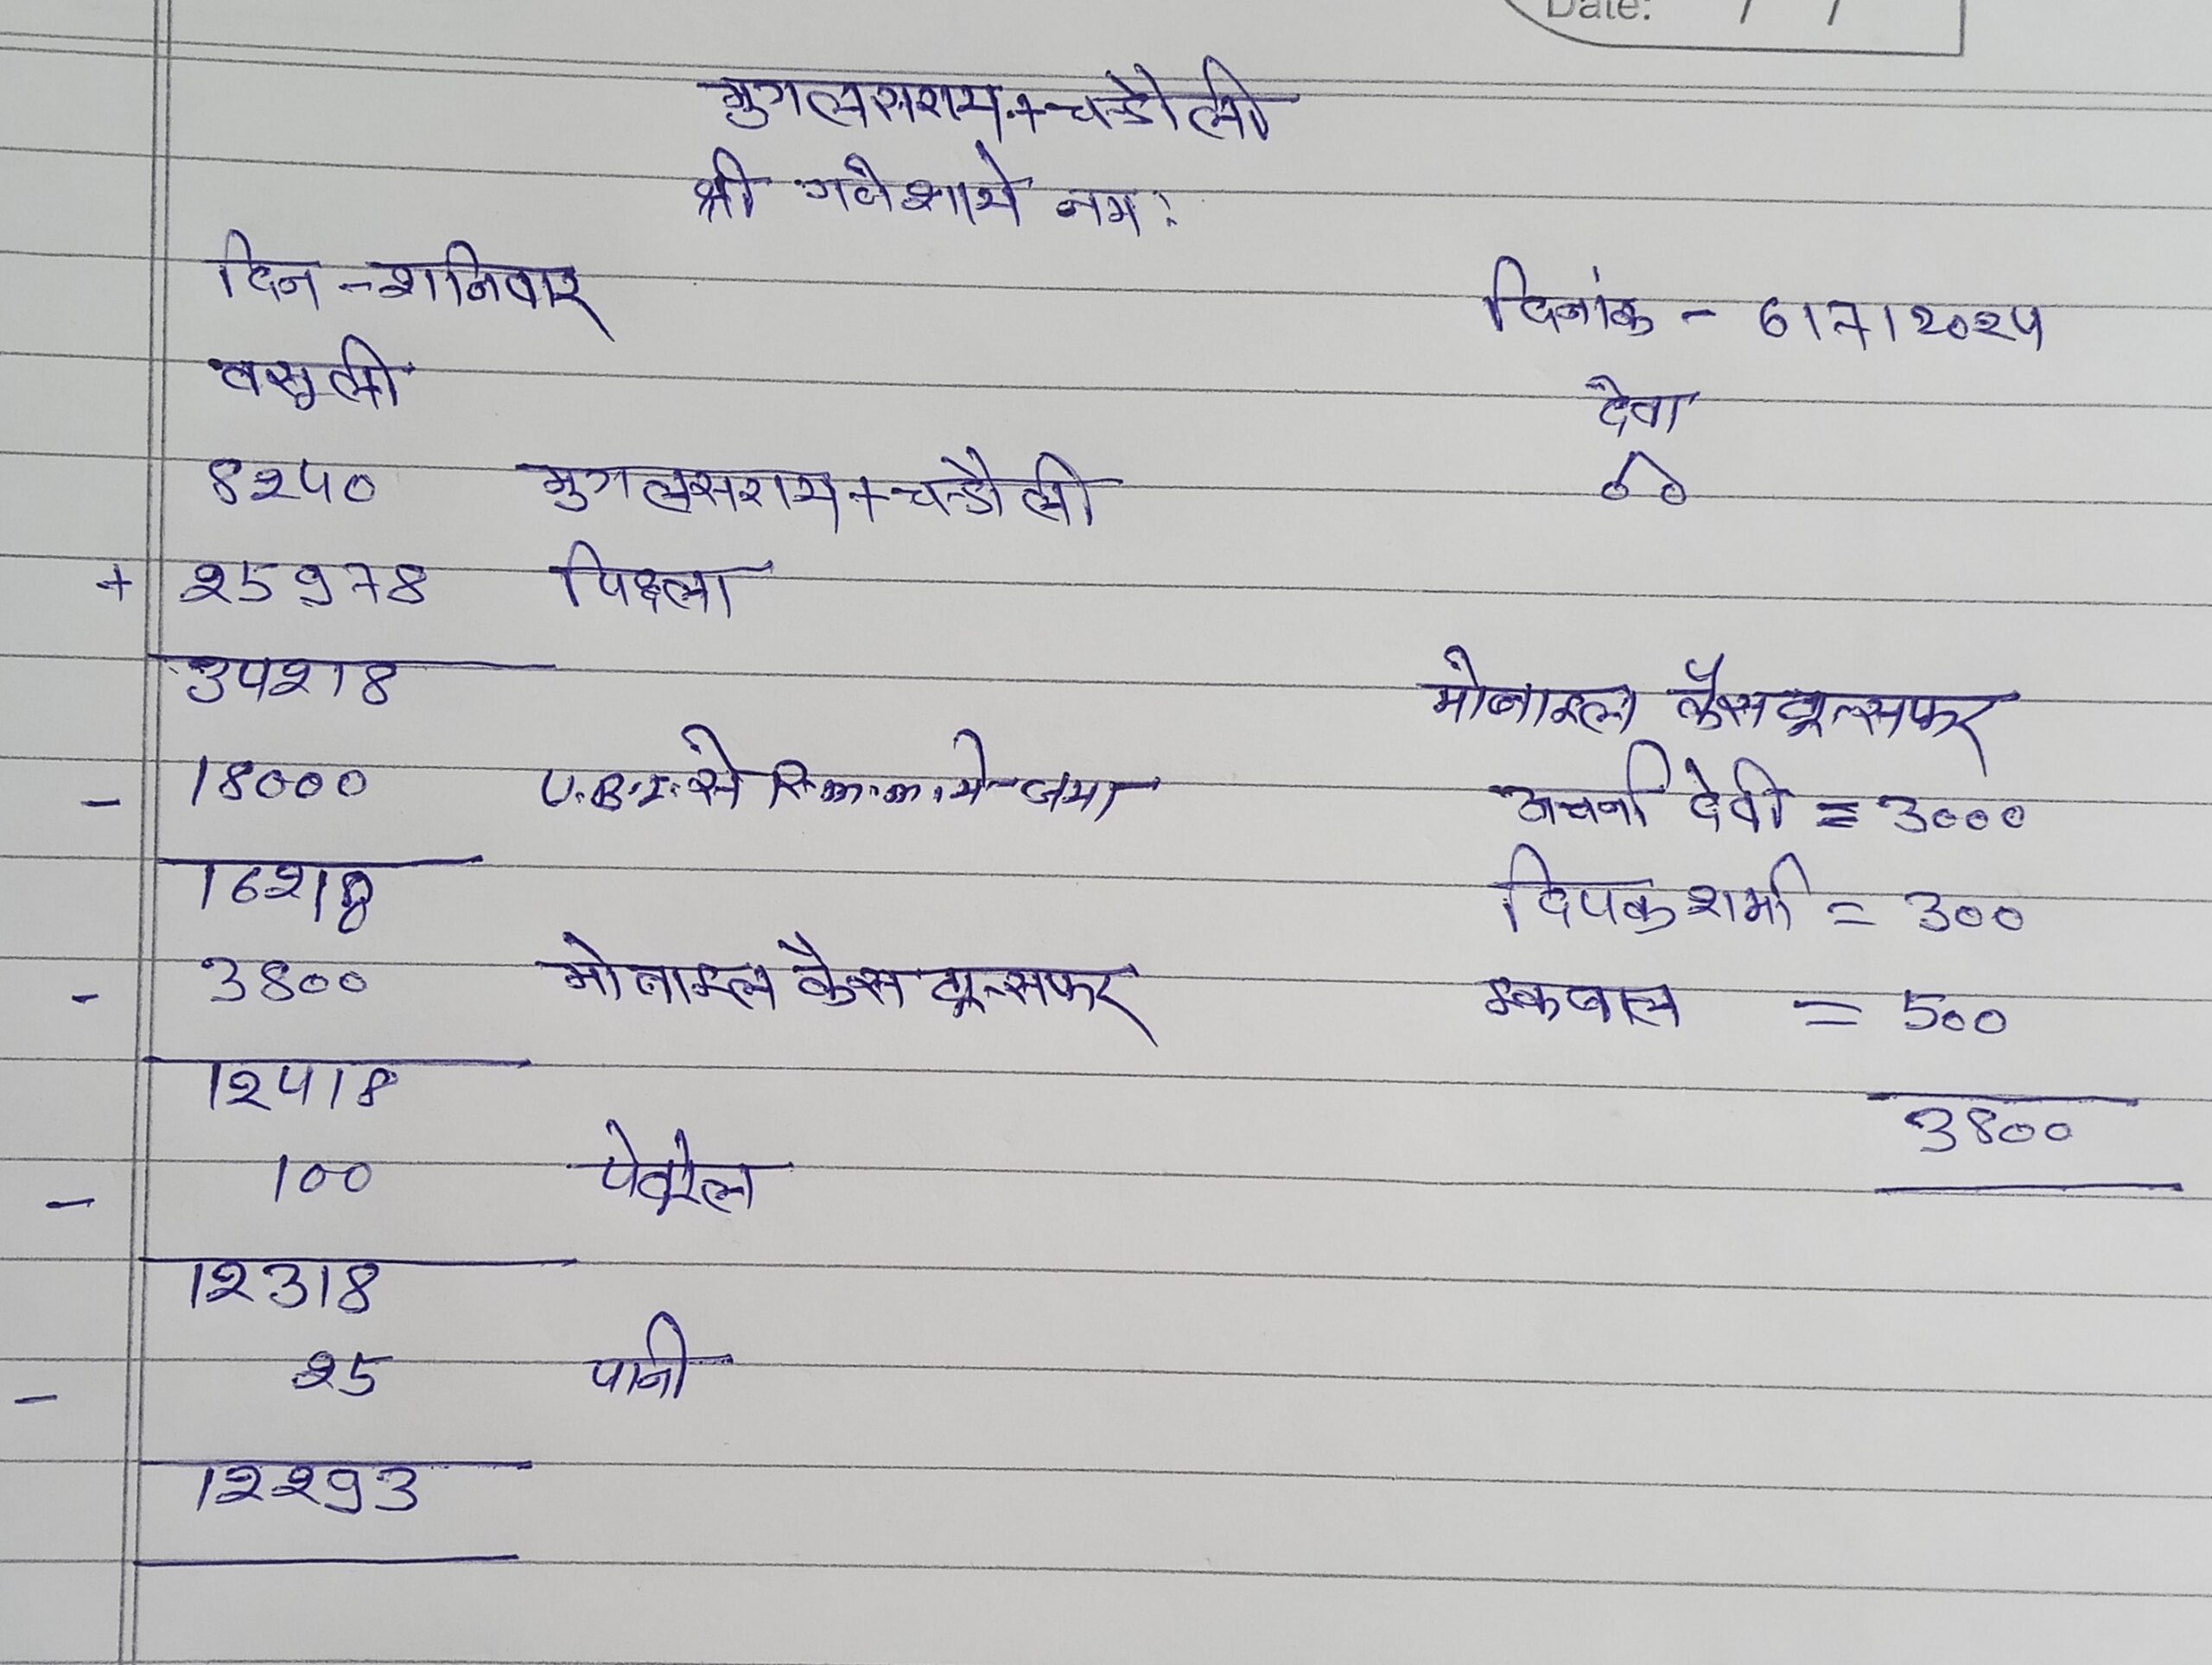 Date: / /
मुगलसराय + चन्डौली
श्री गनेशाये नमः
दिन - शनिवार
दिनांक - 6/7/2024
वसूली
देना
00
8240 मुगलसराय + चन्डौली
+ 25978 पिछला
34218
- 18000 U.B.I. से मे जमा
16218
- 3800 मोबाइल कैस ट्रान्सफर
12418
- 100 पेट्रोल
12318
- 25 पानी
12293
मोबाइल कैस ट्रान्सफर
अर्चना देवी = 3000
दिपक शर्मा = 300
इकबाल = 500
3800